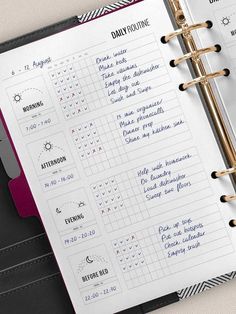 DAILY ROUTINE
6 - 12 August
MORNING
7:00 - 7:40
Drink water
Make beds
Take vitamins
Empty the dishwasher
Let dog out
Swish and Swipe
AFTERNOON
14:10 - 16:30
15 min organize
Make phonecalls
Dinner prep
Shine my kitchen sink
EVENING
19:20 - 20:20
Help with homework
Do laundry
Load dishwasher
Sweep two floors
BEFORE BED
22:00 - 22:30
Pick up toys
Put out
Check calendar
Empty trash